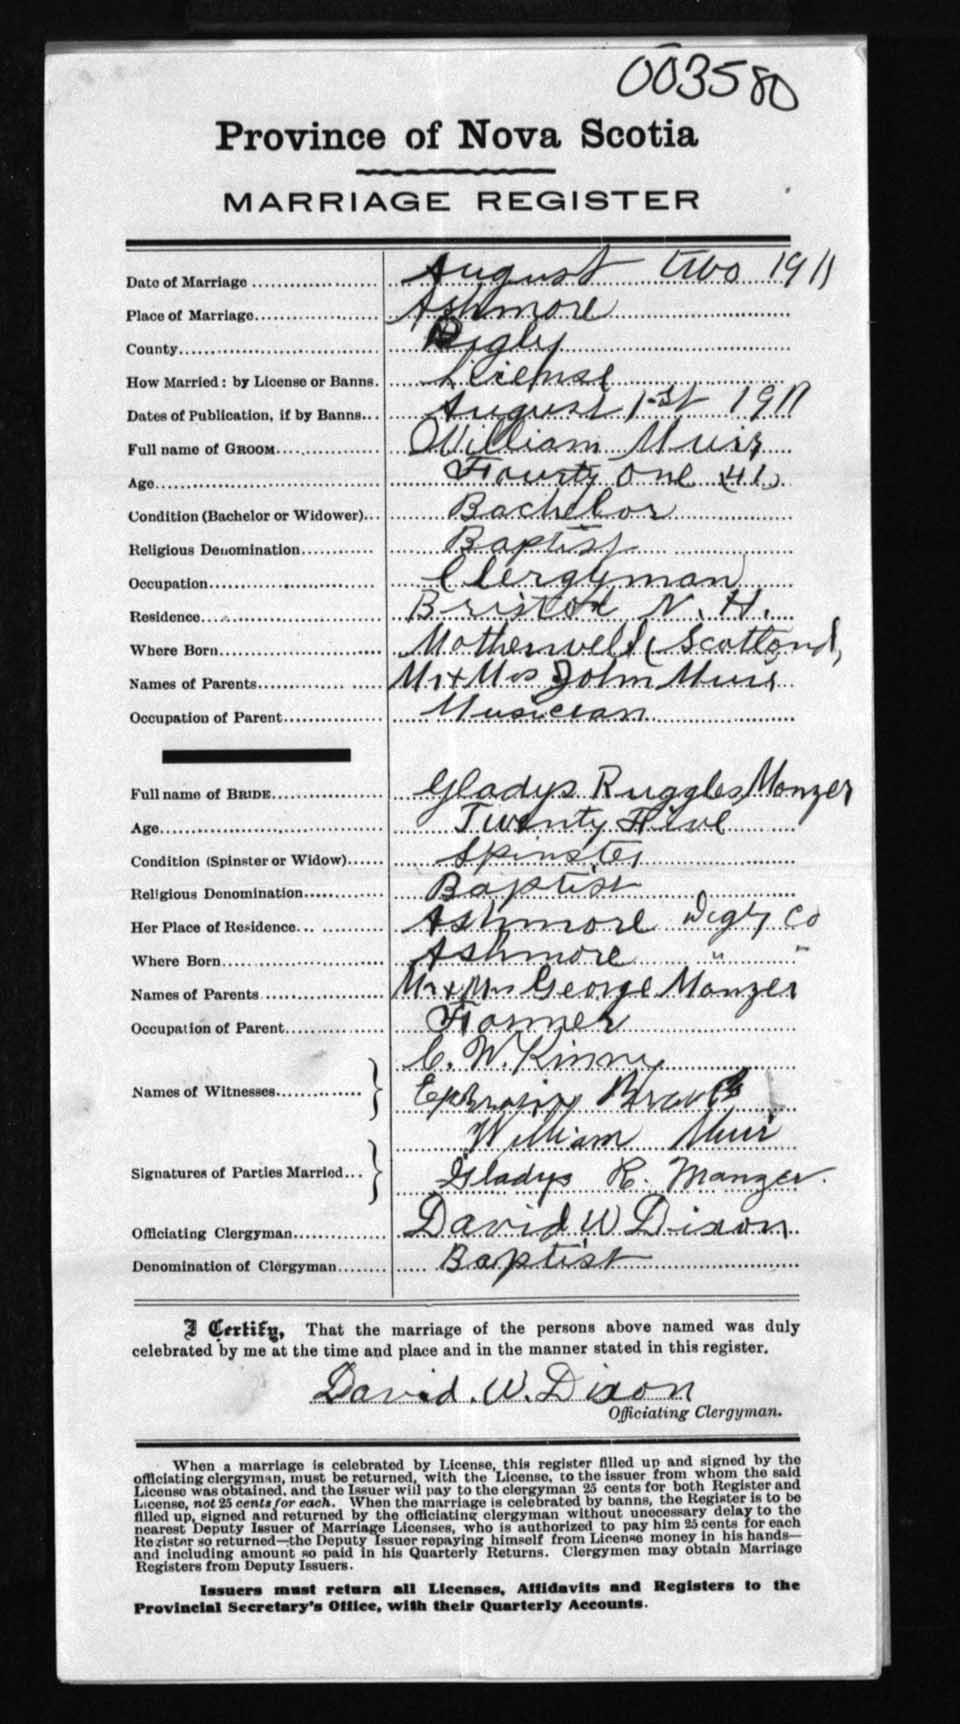 003580
Province of Nova Scotia
MARRIAGE REGISTER
Date of Marriage August two 1911
Place of Marriage Ashmore
County Digby
How Married: by License or Banns. License
Dates of Publication, if by Banns August 1st 1911
Full name of GROOM William Muir
Age Fourty One (41)
Condition (Bachelor or Widower) Bachelor
Religious Denomination Baptist
Occupation Clergyman
Residence Bristol N. H.
Where Born Motherwell Scotland,
Names of Parents Mr + Mrs John Muir
Occupation of Parent Musician
Full name of BRIDE Gladys Ruggles Manzer
Age Twenty Five
Condition (Spinster or Widow) Spinster
Religious Denomination Baptist
Her Place of Residence Ashmore Digby Co
Where Born Ashmore " "
Names of Parents Mr + Mrs George Manzer
Occupation of Parent Farmer
C. W. Kinny
Names of Witnesses
William Muir
Signatures of Parties Married
Gladys R. Manzer.
Officiating Clergyman David W Dixon
Denomination of Clergyman Baptist
I Certify, That the marriage of the persons above named was duly
celebrated by me at the time and place and in the manner stated in this register.
David. W. Dixon
Officiating Clergyman.
When a marriage is celebrated by License, this register filled up and signed by the
officiating clergyman, must be returned, with the License, to the issuer from whom the said
License was obtained, and the Issuer will pay to the clergyman 25 cents for both Register and
License, not 25 cents for each. When the marriage is celebrated by banns, the Register is to be
filled up, signed and returned by the officiating clergyman without unecessary delay to the
nearest Deputy Issuer of Marriage Licenses, who is authorized to pay him 25 cents for each
Register so returned—the Deputy Issuer repaying himself from License money in his hands—
and including amount so paid in his Quarterly Returns. Clergymen may obtain Marriage
Registers from Deputy Issuers.
Issuers must return all Licenses, Affidavits and Registers to the
Provincial Secretary's Office, with their Quarterly Accounts.